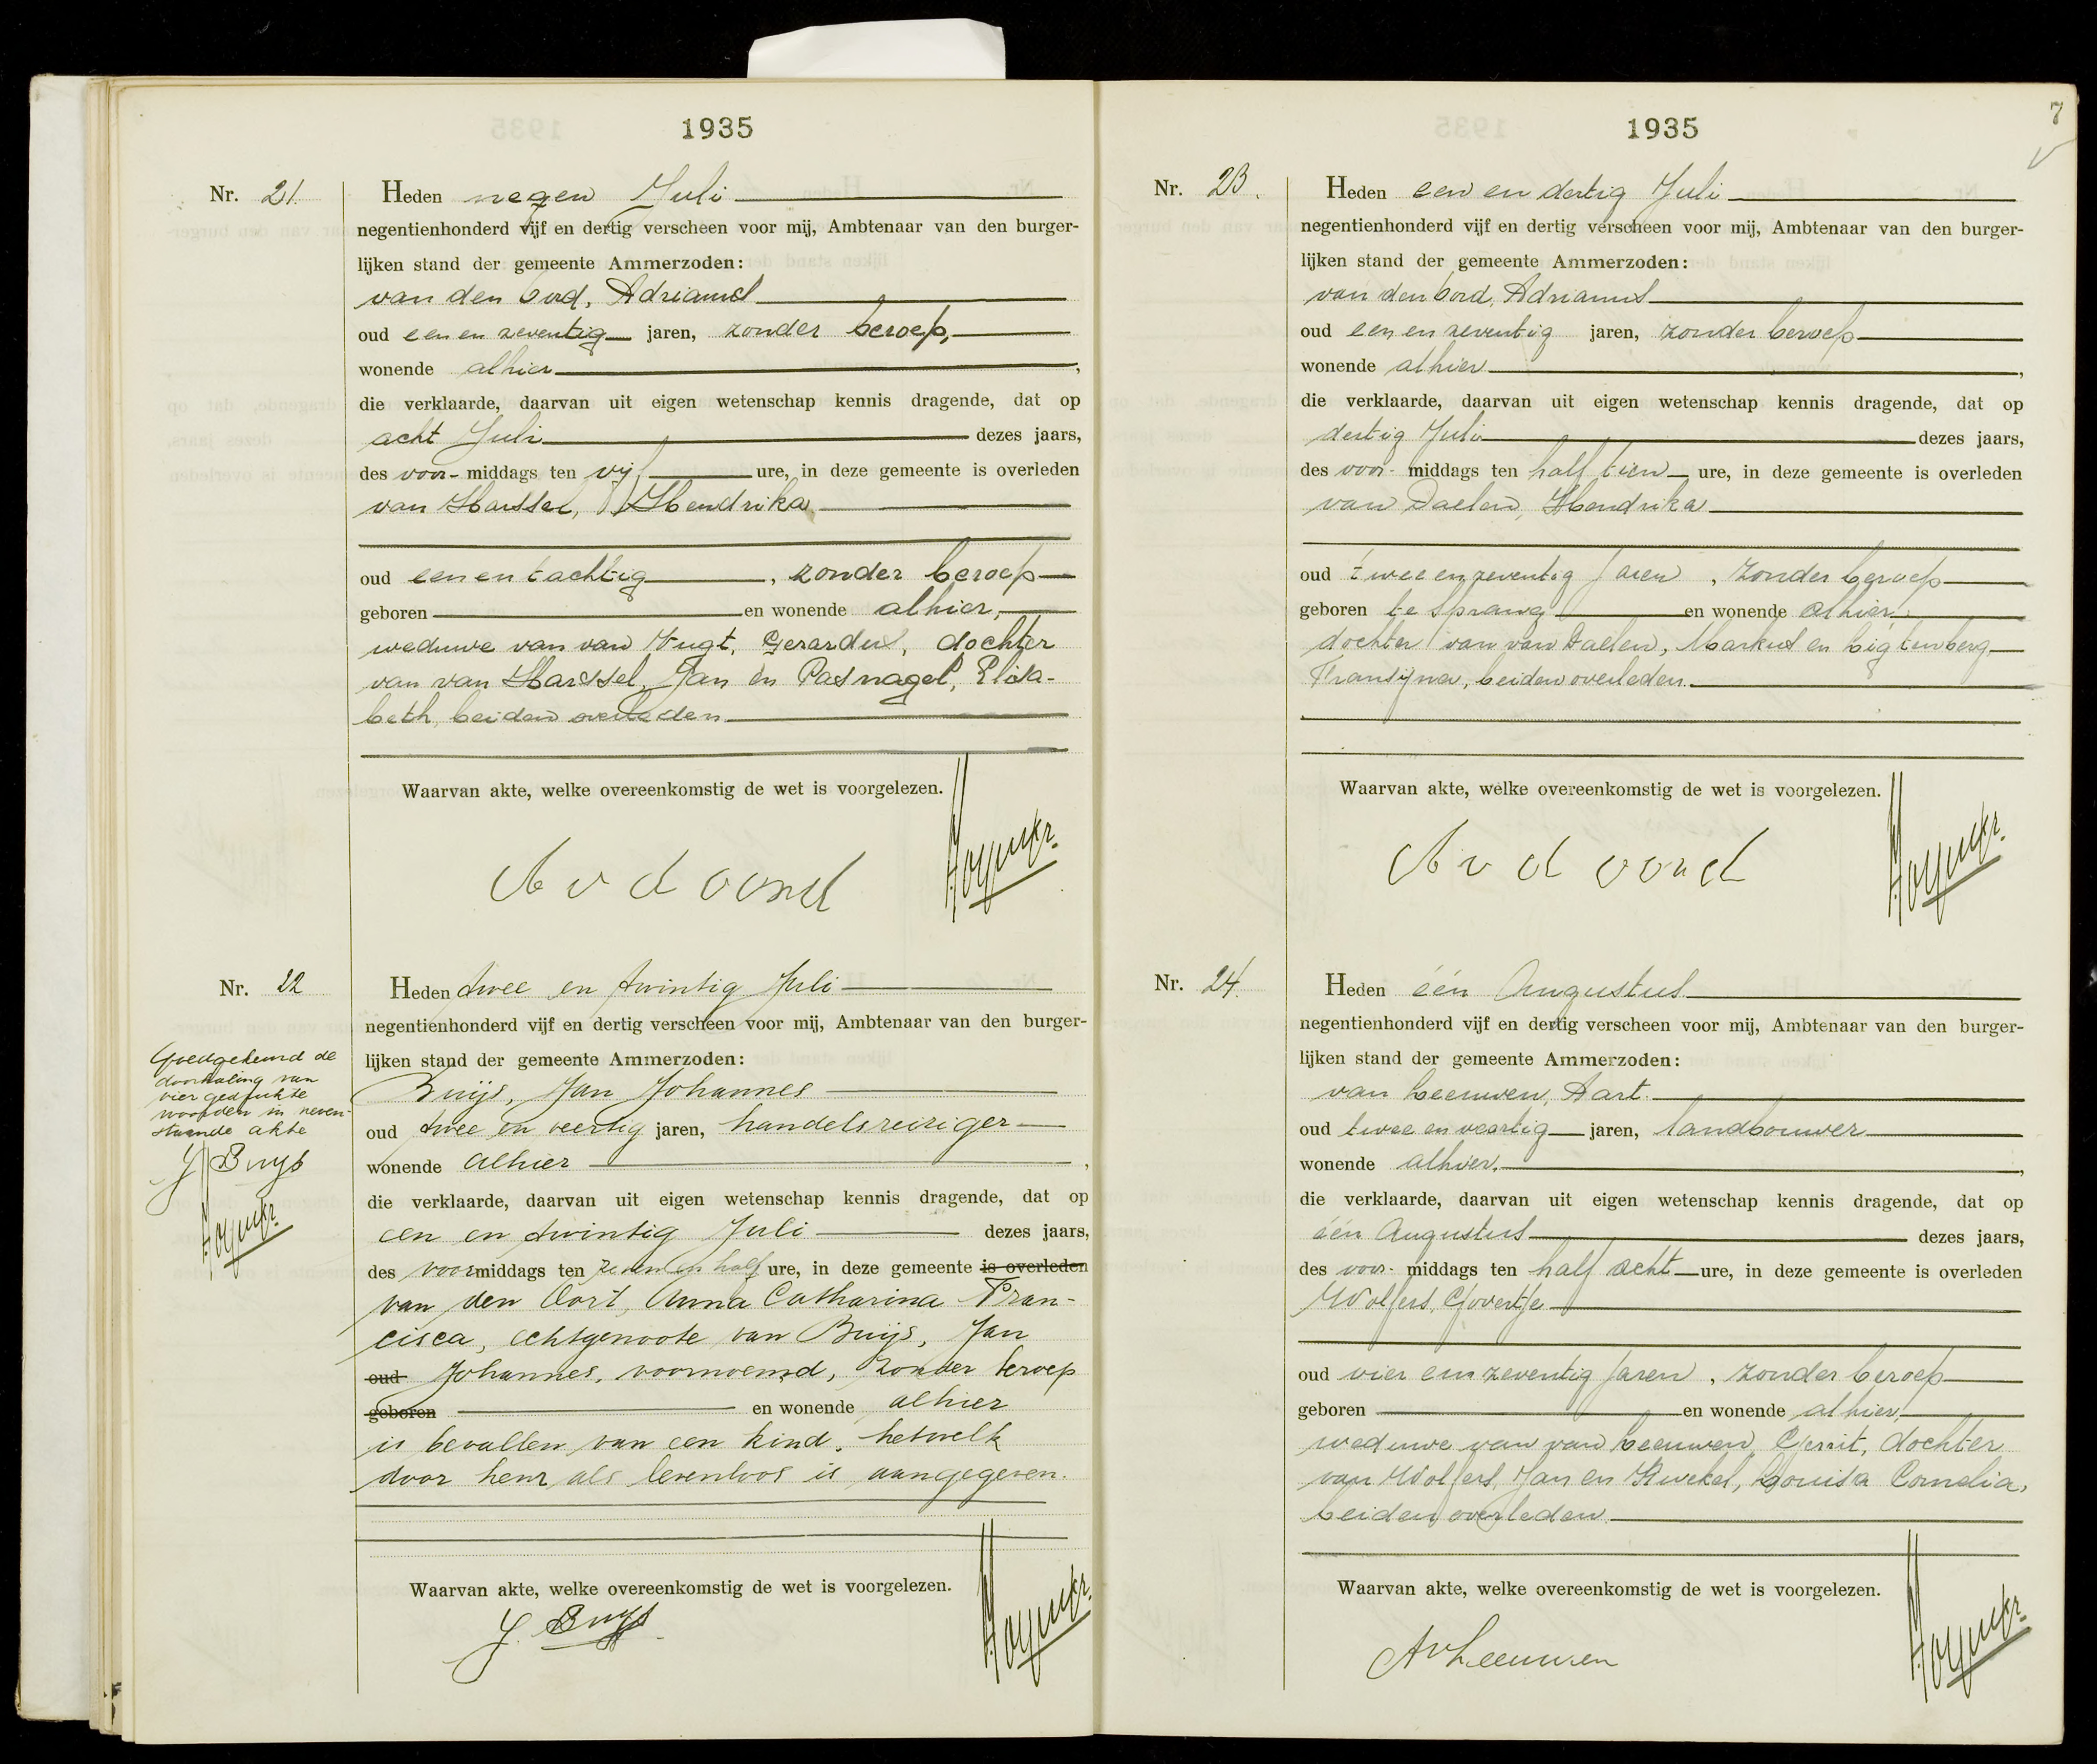 1935
Nr. 21.
Heden negen Juli
negentienhonderd vijf en dertig verscheen voor mij, Ambtenaar van den burger-
lijken stand der gemeente Ammerzoden:
van den Oord, Adrianus
oud een en zeventig jaren, zonder beroep,
wonende alhier,
die verklaarde, daarvan uit eigen wetenschap kennis dragende, dat op
acht Juli dezes jaars,
des voor- middags ten vijf ure, in deze gemeente is overleden
van Hassel, Hendrika
oud een en tachtig, zonder beroep
geboren en wonende alhier,
weduwe van van Vugt, Gerardus, dochter
van van Hassel, Jan en Pasnagel, Elisa-
beth, beiden overleden
Waarvan akte, welke overeenkomstig de wet is voorgelezen.
A v d oord
Nr. 22
Heden twee en twintig Juli
negentienhonderd vijf en dertig verscheen voor mij, Ambtenaar van den burger-
lijken stand der gemeente Ammerzoden:
Buijs, Jan Johannes
oud twee en veertig jaren, handelsreiziger
wonende alhier,
die verklaarde, daarvan uit eigen wetenschap kennis dragende, dat op
een en twintig Juli dezes jaars,
des voormiddags ten zeven en half ure, in deze gemeente is overleden
van den Oort, Anna Catharina Fran-
cisca, echtgenoote van Buijs, Jan
oud Johannes, voornoemd, zonder beroep
geboren en wonende alhier
is bevallen van een kind, hetwelk
door hem als levenloos is aangegeven.
Waarvan akte, welke overeenkomstig de wet is voorgelezen.
J. Buys
Goedgekeurd de
doorhaling van
vier gedrukte
woorden in neven-
staande akte
J Buys
7
1935
Nr. 23.
Heden een en dertig Juli
negentienhonderd vijf en dertig verscheen voor mij, Ambtenaar van den burger-
lijken stand der gemeente Ammerzoden:
van den Oord, Adrianus
oud een en zeventig jaren, zonder beroep
wonende alhier,
die verklaarde, daarvan uit eigen wetenschap kennis dragende, dat op
dertig Juli dezes jaars,
des voor- middags ten half tien ure, in deze gemeente is overleden
van Daelen, Hendrika
oud twee en zeventig jaren, zonder beroep
geboren te Sprang en wonende alhier
dochter van van Daelen, Markus en Ligtenberg
Fransijna, beiden overleden.
Waarvan akte, welke overeenkomstig de wet is voorgelezen.
A v d oord
Nr. 24.
Heden één Augustus
negentienhonderd vijf en dertig verscheen voor mij, Ambtenaar van den burger-
lijken stand der gemeente Ammerzoden:
van Leeuwen, Aart.
oud twee en veertig jaren, landbouwer
wonende alhier.,
die verklaarde, daarvan uit eigen wetenschap kennis dragende, dat op
één Augustus dezes jaars,
des voor- middags ten half acht ure, in deze gemeente is overleden
Wolfers, Govertje
oud vier en zeventig jaren, zonder beroep
geboren en wonende alhier,
weduwe van van Leeuwen, Gerrit, dochter
van Wolfers, Jan en Kwekel, Louisa Cornelia,
beiden overleden.
Waarvan akte, welke overeenkomstig de wet is voorgelezen.
AvLeeuwen